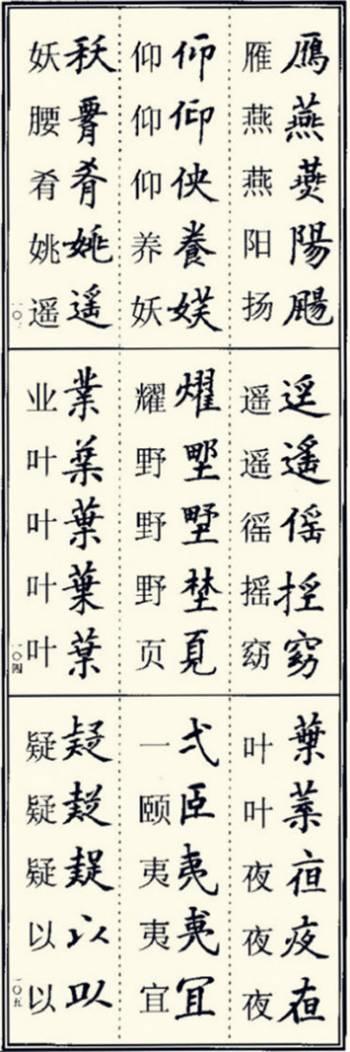 鴈燕陽颺
雁燕燕阳扬
仰仰養
仰仰仰养妖
肴姚遥
妖腰肴姚遥
一〇三
遥傜窈
遥遥徭摇窈
燿埜
耀野野野页
業葉葉葉葉
业叶叶叶叶
一〇四
葉葉夜
叶叶夜夜夜
弌𦣞夷夷冝
一颐夷夷宜
疑以以
疑疑疑以以
一〇五